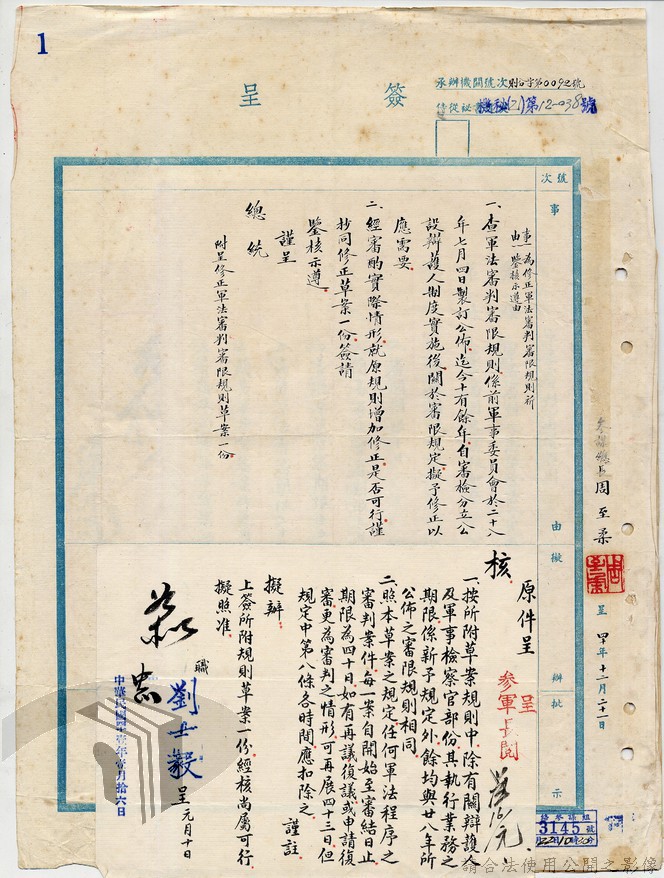 1
簽呈
承辦機關號次
號次
事由擬辦批示
事由 為修正軍法審判審限規則祈
鑒核示遵由
一、查軍法審判審限規則係前軍事委員會於二十八
年七月四日製訂公佈迄今十有餘年自審檢分立公
設辯護人制度實施後關於審限規定擬予修正以
應需要
二、經審酌實際情形就原規則增加修正是否可行謹
抄同修正草案一份簽請
鑒核示遵
謹呈
總統
附呈修正軍法審判審限規則草案一份
周至柔
呈
年十二月二十一日
原件呈
核
呈
參軍長閱
一、按所附草案規則中除有關辯護人
及軍事檢察官部份其執行業務之
期限係新予規定外餘均與廿八年所
公佈之審限規則相同
二、照本草案之規定任何軍法程序之
審判案件每一案自開始至審結日止
期限為四十日如有再議復議或申請復
審更為審判之情形可再展四十三日但
規定中第八條各時間應扣除之
謹註
擬辦
上簽所附規則草案一份經核尚屬可行
擬照准
職
劉士毅
呈 元月十日
中華民國
年壹月拾六日
3145
號
請合法使用公開之影像